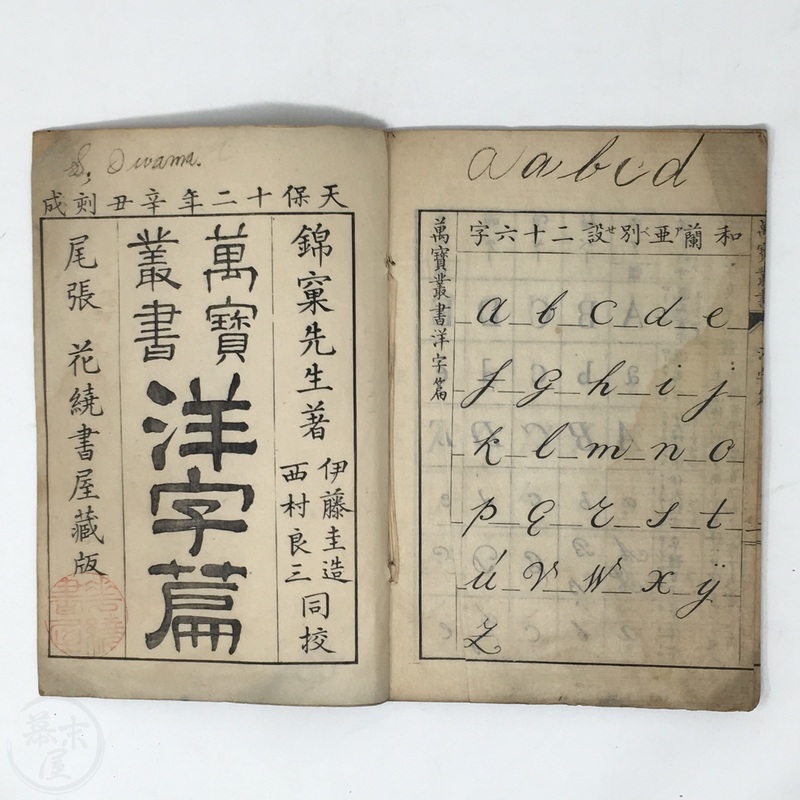 S, Owama.
天保十二年辛丑刻成
錦窠先生著
伊藤圭造
西村良三
同挍
萬寶
叢書
洋字篇
尾張 花繞書屋藏版
a a b c d
和蘭亜別設二十六字
アベセ
萬寶叢書洋字篇
a b c d e
f g h i j
k l m n o
p q r s t
u v w x ÿ
z
幕末屋